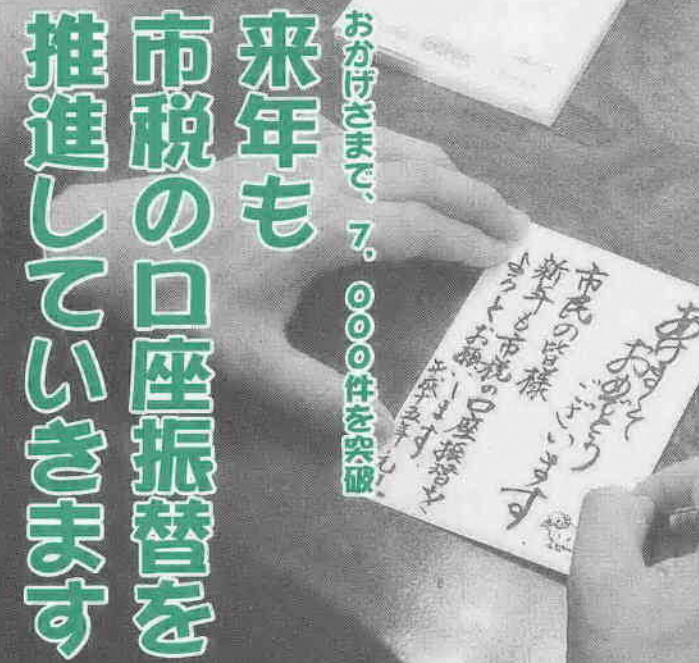 おかげさまで、7,000件を突破
来年も
市税の口座振替を
推進していきます
あけまして
おめでとう
ございます
市民の皆様
新年も市税の口座振替を
よろしくお願いします。
平成十五年元旦